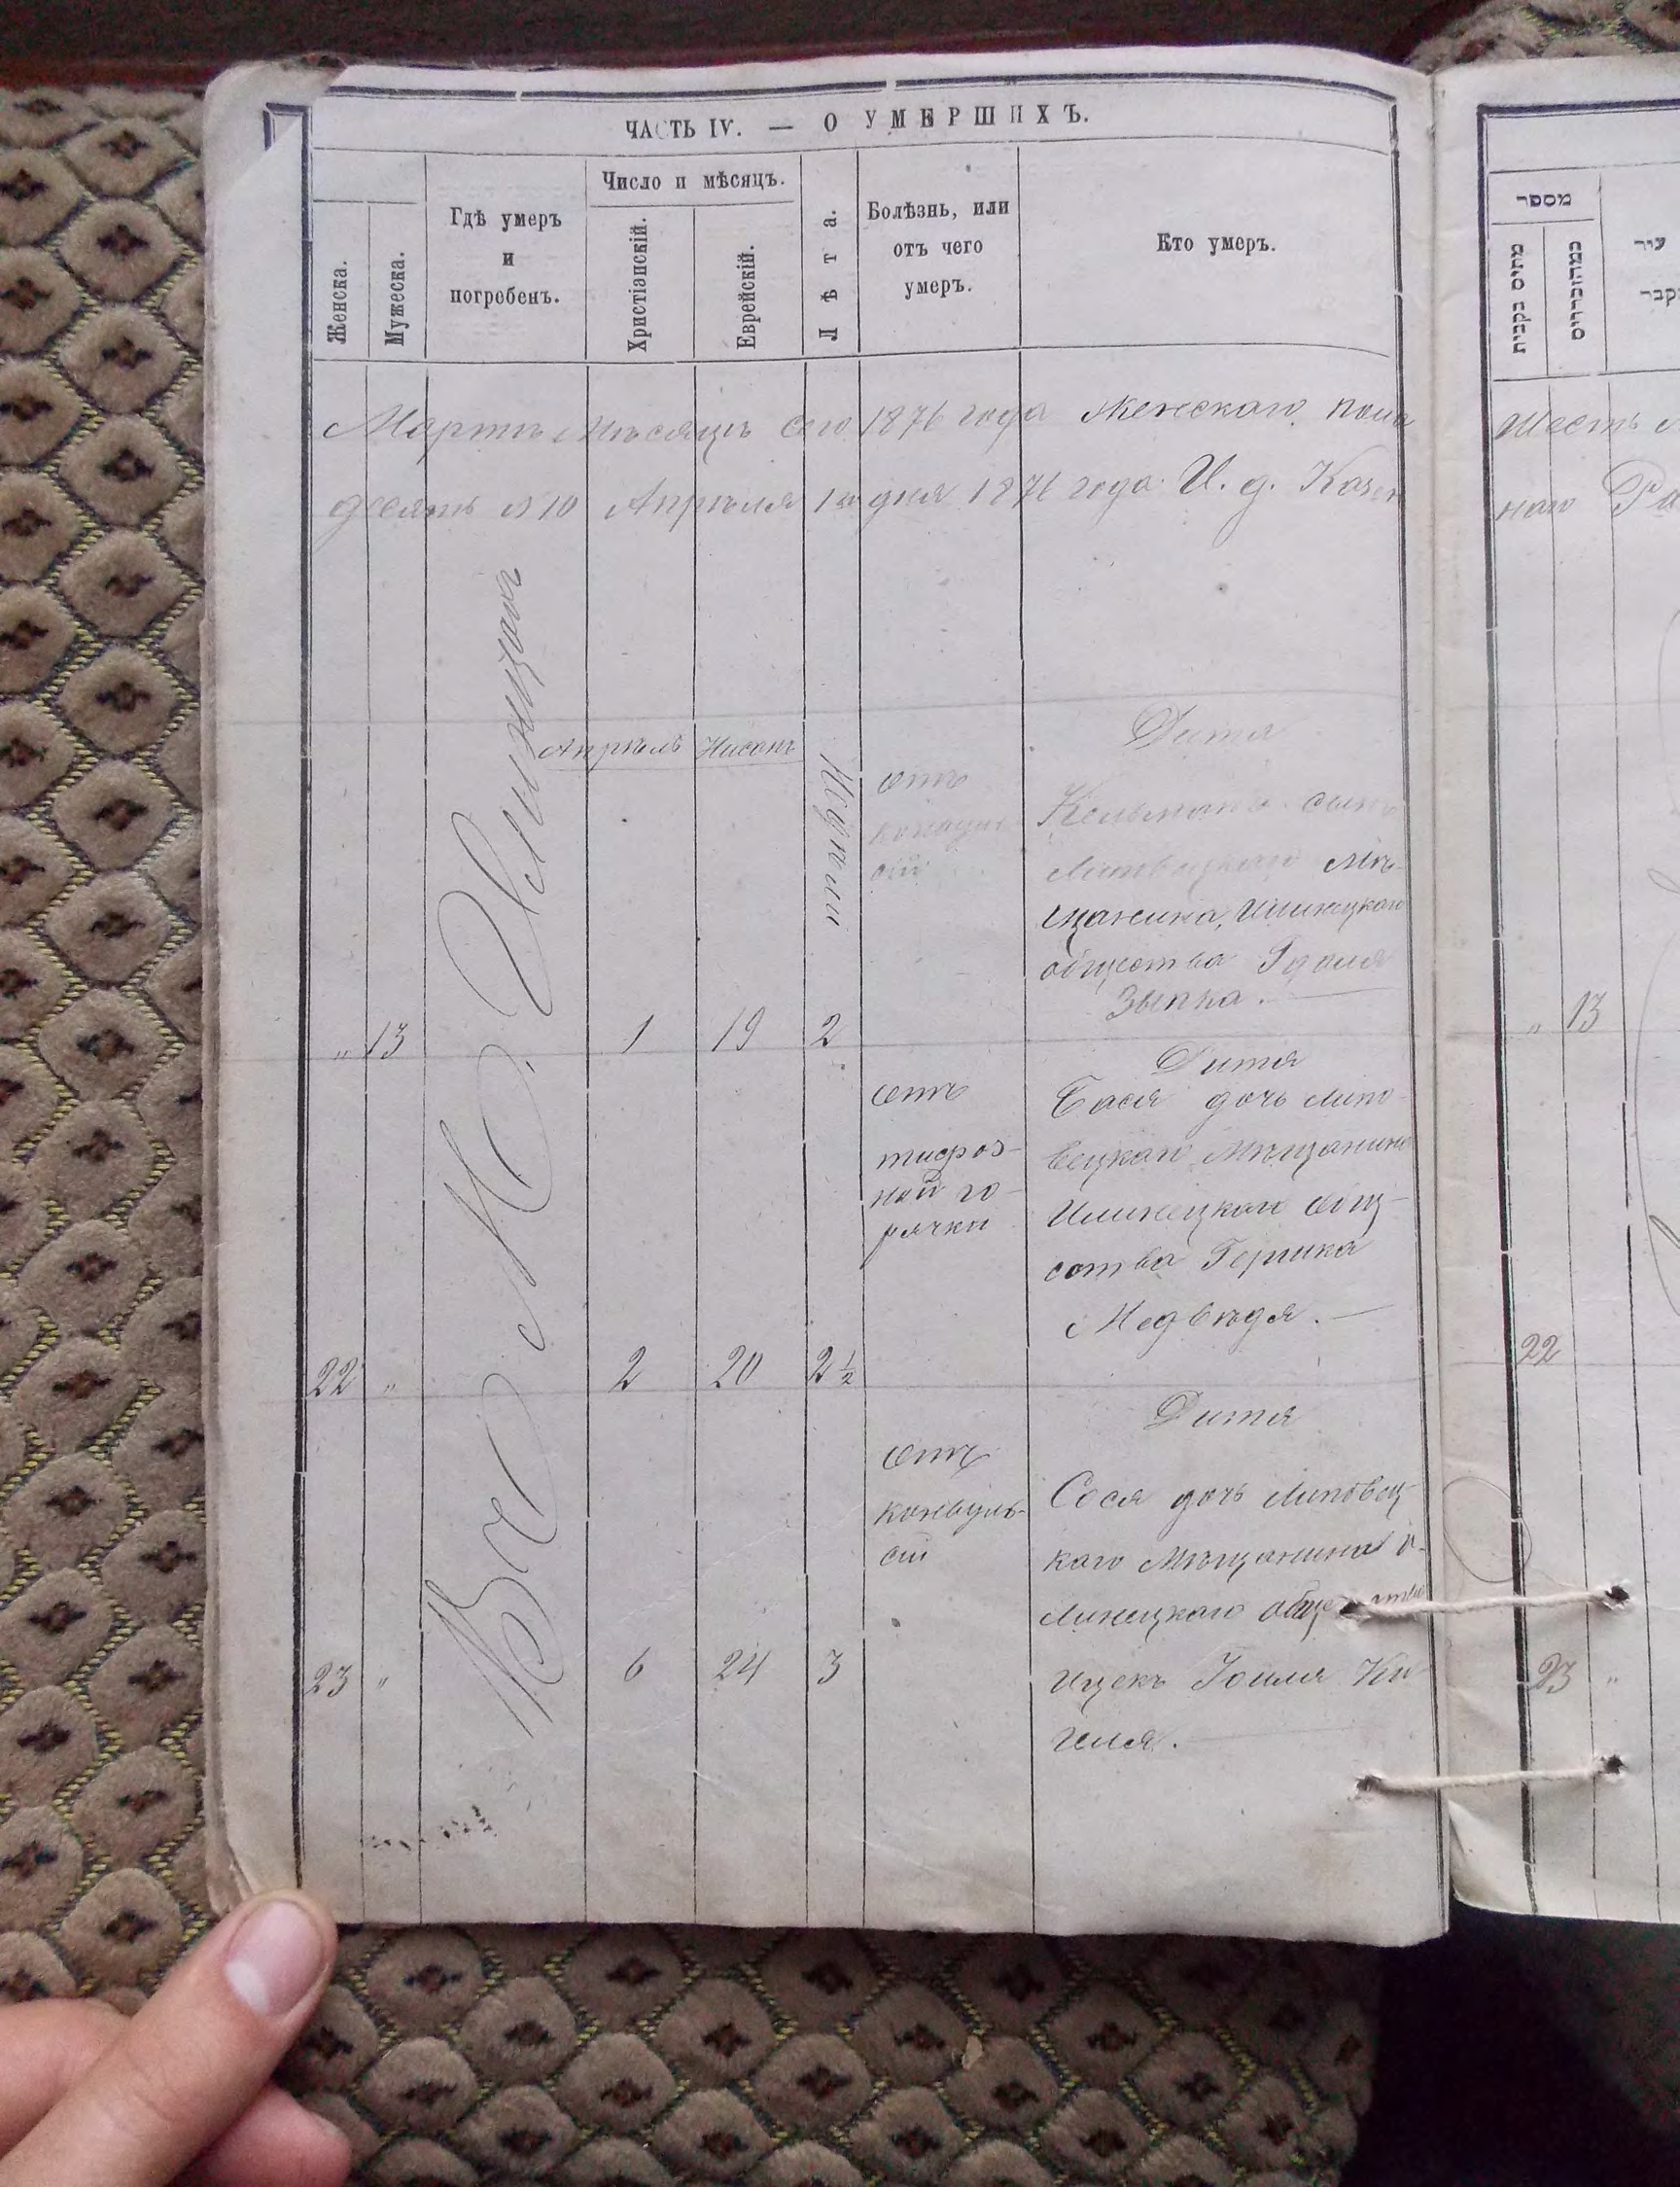 ЧАСТЬ IV. — О УМЕРШИХЪ.
Женска.
Мужеска.
Гдѣ умеръ
и
погребенъ.
Число и мѣсяцъ.
Христіанскій.
Еврейскій.
Лѣта.
Болѣзнь, или
отъ чего
умеръ.
Кто умеръ.
Мартъ мѣсяцъ сего 1876 года Женскаго пола
десять №10 Апрѣля 1го дня 1876 года. И. д. Казен
Въ М. Илинцахъ
Апрѣль Нисанъ
Недѣли
„ 13 1 19 2
отъ
конвуль
сій
Дитя
Кельманъ сынъ
Липовецкаго Мѣ-
щанина, Илинецкаго
общества
Зыпка.
22 „ 2 20 2 ½
отъ
тифоз-
ной го-
рячки
Дитя
Бася дочь Липо-
вецкаго Мѣщанина
Илинецкаго общ-
ства Гершка
Медвѣдя.—
23 „ 6 24 3
отъ
конвуль-
сіи
Дитя
Сося дочь Липовец-
каго Мѣщанина И-
линецкаго общества
Ицекъ Іойля Ки-
геля.
מספר
עיר
Шесть
наго
„ 13
22
23 „